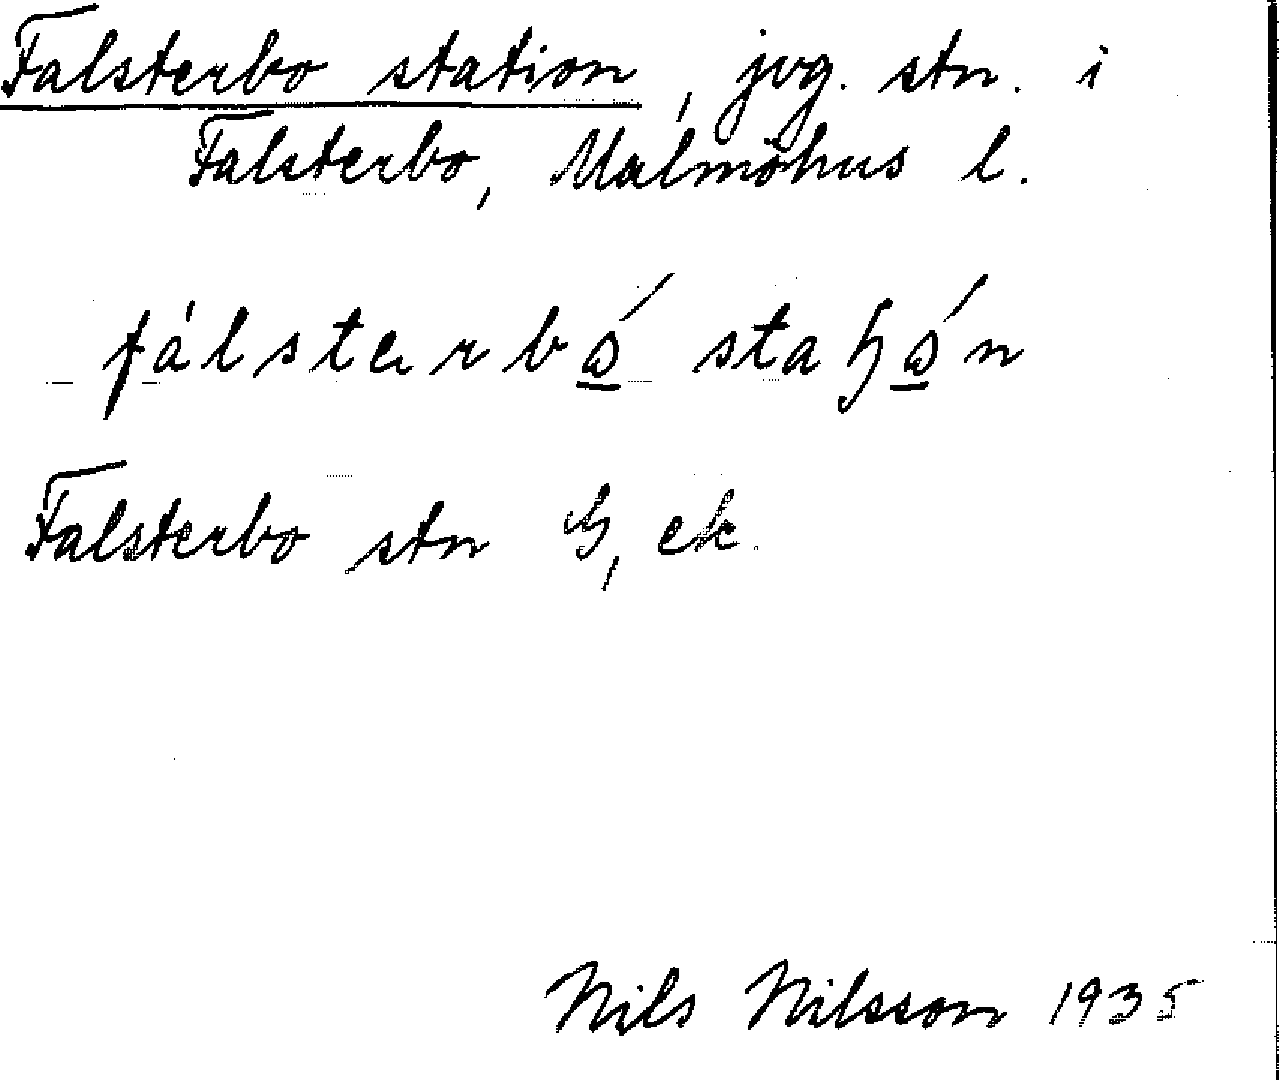 Falsterbo station, jvg. stn. i
Falsterbo, Malmöhus l.
fálsterbó̲ staɧó̲n
Falsterbo stn G, ek.
Nils Nilsson 1935